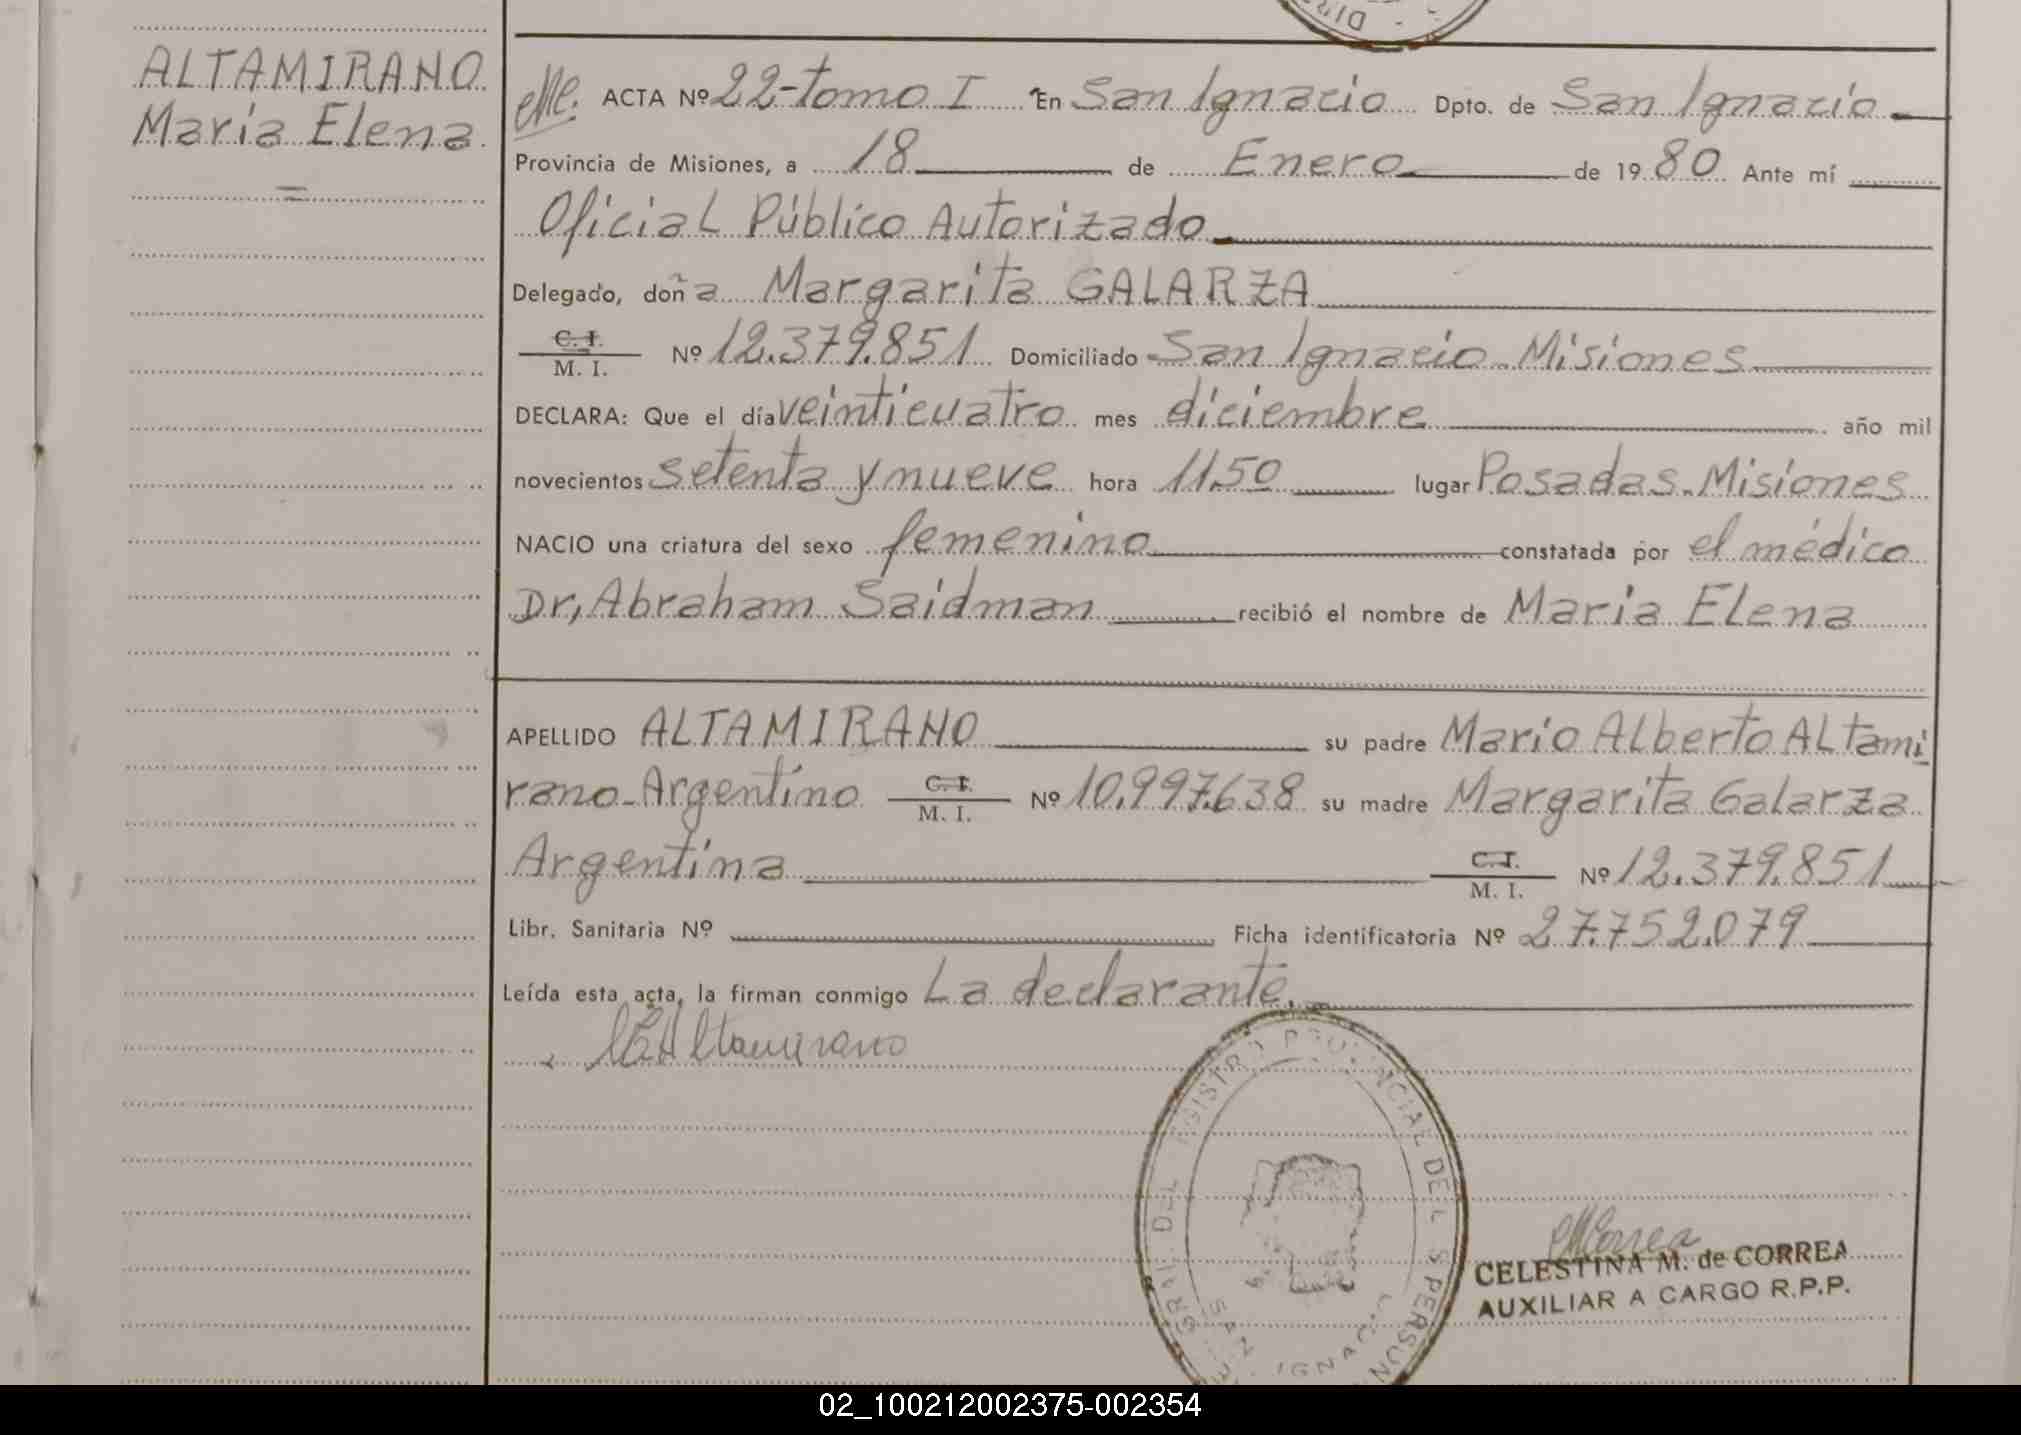 DIR
ALTAMIRANO
María Elena
=
ACTA Nº 22-tomo I En San Ignacio Dpto. de San Ignacio
Provincia de Misiones, a 18 de Enero de 1980 Ante mí
Oficial Público Autorizado
Delegado, doña Margarita GALARZA
C. I. / M. I. Nº 12.379.851 Domiciliado San Ignacio-Misiones
DECLARA: Que el día veinticuatro mes diciembre año mil
novecientos setenta y nueve hora 11.50 lugar Posadas-Misiones
NACIO una criatura del sexo femenino constatada por el médico
Dr, Abraham Saidman recibió el nombre de María Elena
APELLIDO ALTAMIRANO su padre Mario Alberto Altami
rano-Argentino C. I. / M. I. Nº 10.997.638 su madre Margarita Galarza
Argentina C. I. / M. I. Nº 12.379.851
Libr. Sanitaria Nº Ficha identificatoria Nº 27.752.079
Leída esta acta, la firman conmigo La declarante.
Altamirano
GRAL. DEL REGISTRO PROVINCIAL DE L S PERSON
SAN IGNACIO
CELESTINA M. de CORREA
AUXILIAR A CARGO R.P.P.
02_100212002375-002354